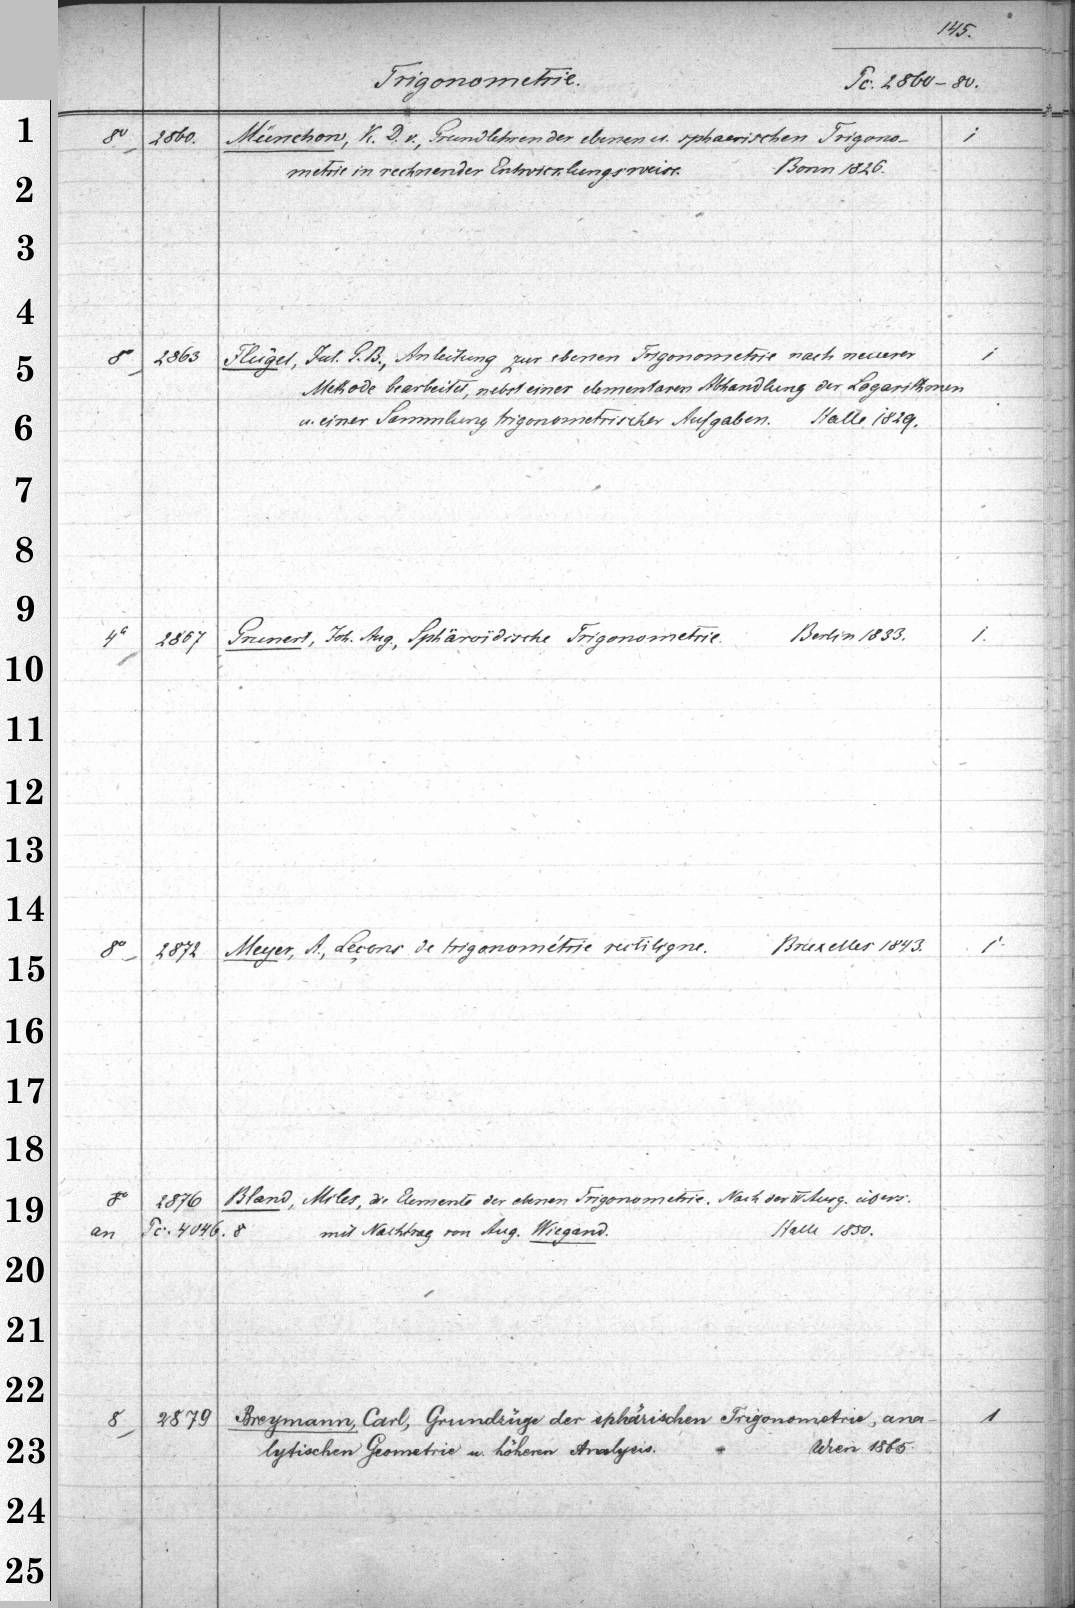 145.
Trigonometrie. Tc. 2860-80.
1 8° 2860. Münchow, K. D. v., Grundlehren der ebenen u. sphaerischen Trigono- 1
2 metrie in rechnender Entwicklungsweise. Bonn 1826.
3
4
5 8° 2863 Flügel, Jul. G. B., Anleitung zur ebenen Trigonometrie nach neuerer 1
Methode bearbeitet, nebst einer elementaren Abhandlung der Logarithmen
6 u. einer Sammlung trigonometrischer Aufgaben. Halle 1829.
7
8
9
4° 2867 Grunert, Joh. Aug., Sphäroïdische Trigonometrie. Berlin 1833. 1.
10
11
12
13
14
8° 2872 Meyer, A., Leçons de trigonométrie rectiligne. Bruxelles 1843. 1.
15
16
17
18
19 8° 2876 Bland, Miles, die Elemente der ebenen Trigonometrie. Nach der Ausg. übers.
an Tc. 4046. 8 mit Nachtrag von Aug. Wiegand. Halle 1850.
20
21
22
8 2879 Breymann, Carl, Grundzüge der sphärischen Trigonometrie, ana- 1
23 lytischen Geometrie u. höheren Analysis. Wien 1865.
24
25